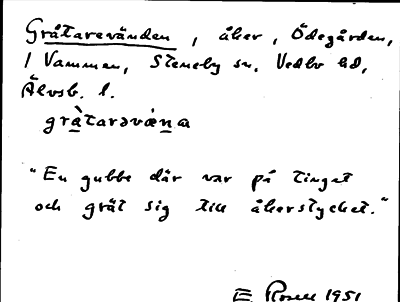 Gråtarevänden, åker, Ödegården,
1 Vammen, Steneby sn. Vedbo hd,
Älvsb. l.
gràtarəvæ̀na
"En gubbe där var på tinget
och grät sig till åkerstycket."
E Rosell 1951